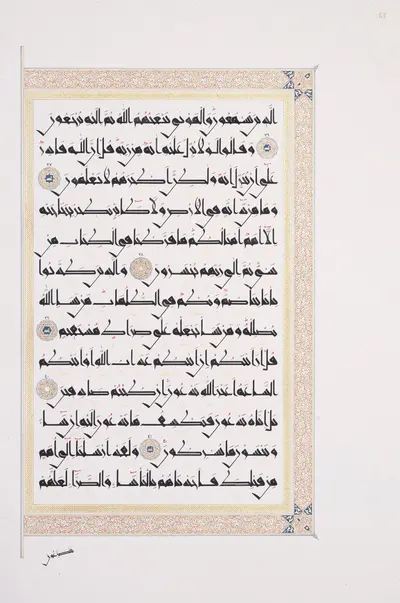 الذين يسمعون والموتى يبعثهم الله ثم إليه يرجعون
وقالوا لولا نزل عليه آية من ربه قل إن الله قادر
على أن ينزل آية ولكن أكثرهم لا يعلمون
وما من دابة في الأرض ولا طائر يطير بجناحيه
إلا أمم أمثالكم ما فرطنا في الكتاب من
شيء ثم إلى ربهم يحشرون والذين كذبوا
بآياتنا صم وبكم في الظلمات من يشأ الله
يضلله ومن يشأ يجعله على صراط مستقيم
قل أرأيتكم إن أتاكم عذاب الله أو أتتكم
الساعة أغير الله تدعون إن كنتم صادقين
بل إياه تدعون فيكشف ما تدعون إليه إن شاء
وتنسون ما تشركون ولقد أرسلنا إلى أمم
من قبلك فأخذناهم بالبأساء والضراء لعلهم